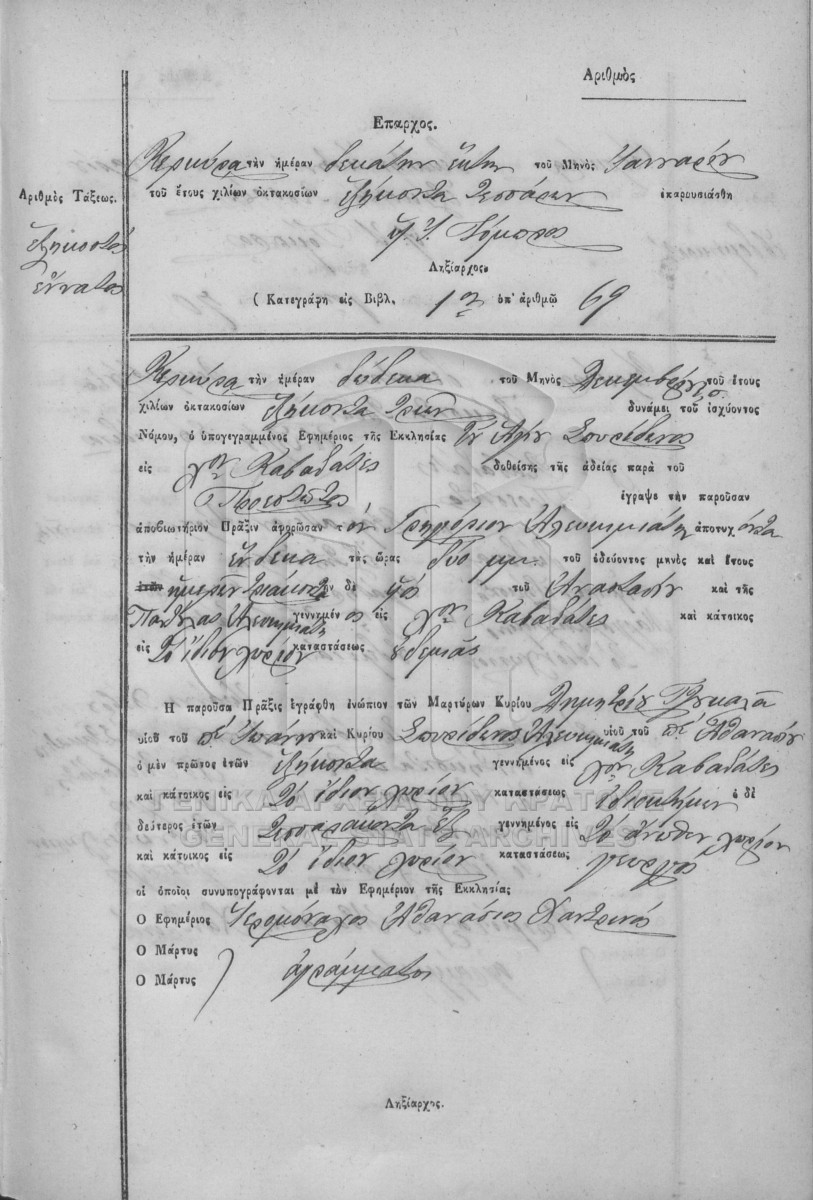 Αριθμὸς
Επαρχος.
Κερκύρα τὴν ἡμέραν δεκάτην ἕκτην τοῦ Μηνὸς Ἰανναρίου
Αριθμὸς Τάξεως. τοῦ ἔτους χιλίων ὀκτακοσίων ἑξήκοντα τεσσάρων ἐπαρουσιάσθη
ἑξηκοστὸς
Ληξίαρχος
εννατος
( Κατεγράφη εἰς Βιβλ. 1ον ὑπ' ἀριθμῷ 69
Κερκύρα τὴν ἡμέραν δώδεκα τοῦ Μηνὸς Δεκεμβρίου τοῦ ἔτους
χιλίων ὀκτακοσίων ἑξήκοντα τριῶν δυνάμει τοῦ ἰσχύοντος
Νόμου, ὁ ὑπογεγραμμένος Ἐφημέριος τῆς Ἐκκλησίας Ἁγίου Σπυρίδωνος
εἰς χον Καβαδάτες δοθείσης τῆς ἀδείας παρὰ τοῦ
Προεστῶτος ἔγραψε τὴν παροῦσαν
ἀποβιωτήριον Πρᾶξιν ἀφορῶσαν τὸν Γρηγόριον Αλευκιμιάτη ἀποτυχόντα
τὴν ἡμέραν ἕνδεκα τὰς ὥρας δύο μμ. τοῦ ὁδεύοντος μηνὸς καὶ ἔτους
ἡμερῶν τριάκοντα ἢν δὲ υἱὸς τοῦ Αναστασίου καὶ τῆς
Αλευκιμιάτη γεννημένος εἰς χον Καβαδάτες καὶ κάτοικος
εἰς Τὸ ἴδιον χωρίον καταστάσεως οὐδεμιᾶς
Η παροῦσα Πρᾶξις ἐγράφθη ἐνώπιον τῶν Μαρτύρων Κυρίου Δημητρίου
υἱοῦ τοῦ πὲ Ἰωάννη καὶ Κυρίου Σπυρίδωνος Αλευκιμιάτη υἱοῦ τοῦ πὲ Αθανασίου
ὁ μὲν πρῶτος ἐτῶν ἑξήκοντα γεννημένος εἰς χον Καβαδάτες
καὶ κάτοικος εἰς Τὸ ἴδιον χωρίον καταστάσεως ἰδιοκτήτης ὁ δὲ
δεύτερος ἐτῶν τεσσαράκοντα ἓξ γεννημένος εἰς Τὸ ἄνωθεν χωρίον
καὶ κάτοικος εἰς Τὸ ἴδιον χωρίον καταστάσεως γεωργὸς
οἱ ὁποῖοι συνυπογράφονται μὲ τὸν Ἐφημέριον τῆς Ἐκκλησίας
Ο Ἐφημέριος Ἱερομόναχος Αθανάσιος
Ο Μάρτυς
Ο Μάρτυς ἀγράμματοι
Ληξίαρχος.
ΓΕΝΙΚΑ ΑΡΧΕΙΑ ΤΟΥ ΚΡΑΤΟΥΣ
GENERAL STATE ARCHIVES